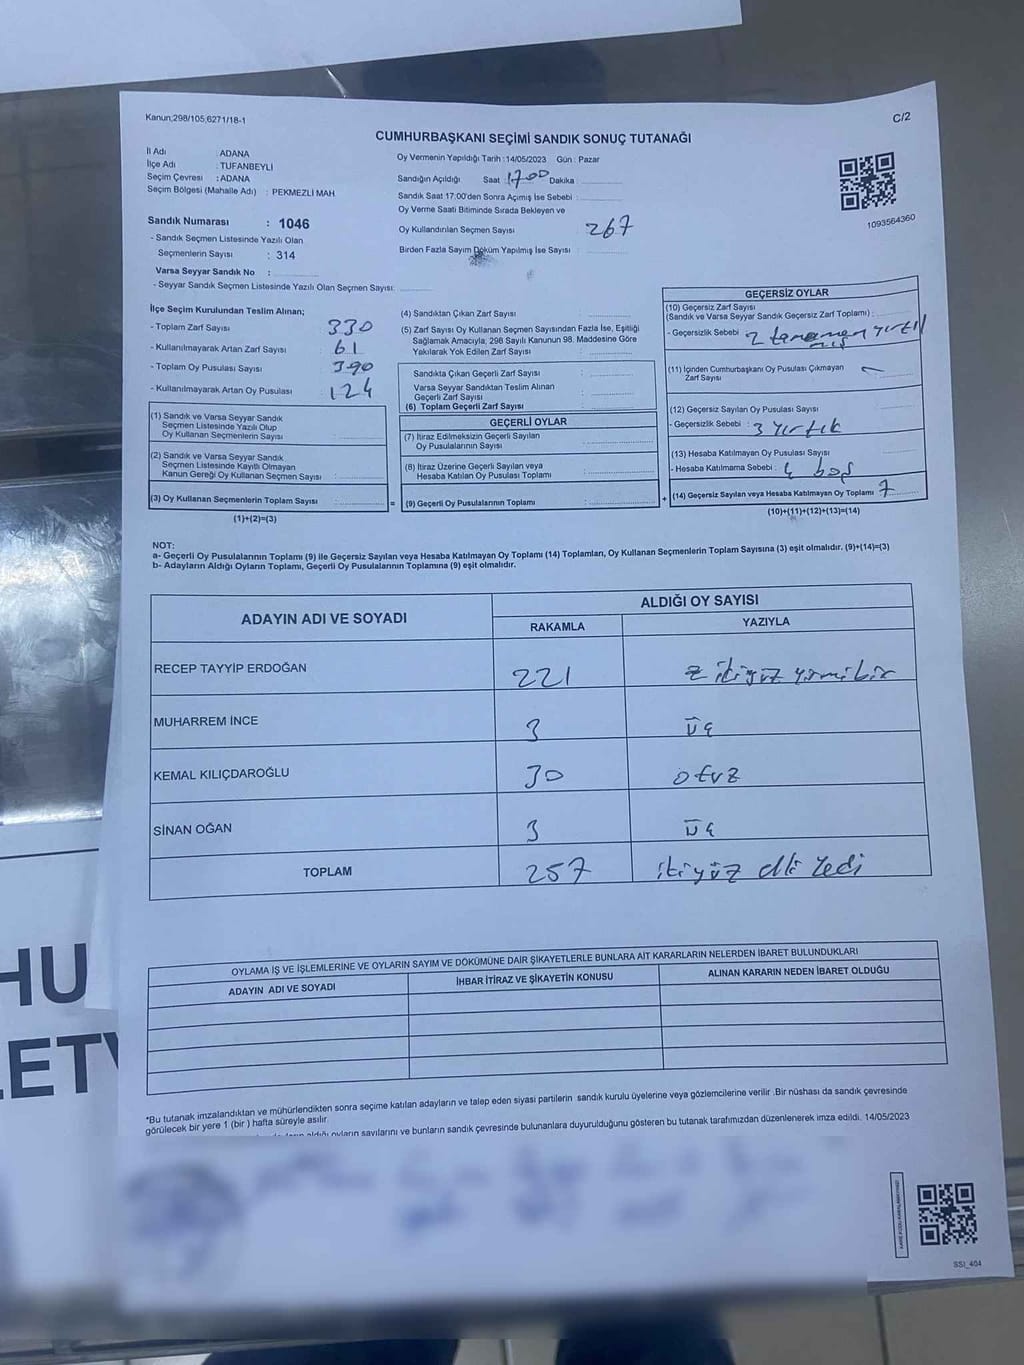 Kanun,298/105,6271/18-1
C/2
CUMHURBAŞKANI SEÇİMİ SANDIK SONUÇ TUTANAĞI
İl Adı : ADANA
İlçe Adı : TUFANBEYLİ
Seçim Çevresi : ADANA
Seçim Bölgesi (Mahalle Adı) : PEKMEZLİ MAH.
Sandık Numarası : 1046
- Sandık Seçmen Listesinde Yazılı Olan
Seçmenlerin Sayısı : 314
Varsa Seyyar Sandık No :
- Seyyar Sandık Seçmen Listesinde Yazılı Olan Seçmen Sayısı:
Oy Vermenin Yapıldığı Tarih :14/05/2023 Gün : Pazar
Sandığın Açıldığı Saat 1700 Dakika
Sandık Saat 17:00'den Sonra Açımış İse Sebebi :
Oy Verme Saati Bitiminde Sırada Bekleyen ve
Oy Kullandırılan Seçmen Sayısı : 267
Birden Fazla Sayım Döküm Yapılmış İse Sayısı :
1093564360
İlçe Seçim Kurulundan Teslim Alınan;
- Toplam Zarf Sayısı : 330
- Kullanılmayarak Artan Zarf Sayısı : 61
- Toplam Oy Pusulası Sayısı : 390
- Kullanılmayarak Artan Oy Pusulası : 124
(1) Sandık ve Varsa Seyyar Sandık
Seçmen Listesinde Yazılı Olup
Oy Kullanan Seçmenlerin Sayısı :
(2) Sandık ve Varsa Seyyar Sandık
Seçmen Listesinde Kayıtlı Olmayan
Kanun Gereği Oy Kullanan Seçmen Sayısı :
(3) Oy Kullanan Seçmenlerin Toplam Sayısı :
(1)+(2)=(3)
=
(4) Sandıktan Çıkan Zarf Sayısı :
(5) Zarf Sayısı Oy Kullanan Seçmen Sayısından Fazla İse, Eşitliği
Sağlamak Amacıyla, 298 Sayılı Kanunun 98. Maddesine Göre
Yakılarak Yok Edilen Zarf Sayısı :
Sandıkta Çıkan Geçerli Zarf Sayısı :
Varsa Seyyar Sandıktan Teslim Alınan
Geçerli Zarf Sayısı :
(6) Toplam Geçerli Zarf Sayısı :
GEÇERLİ OYLAR
(7) İtiraz Edilmeksizin Geçerli Sayılan
Oy Pusulalarının Sayısı :
(8) İtiraz Üzerine Geçerli Sayılan veya
Hesaba Katılan Oy Pusulası Toplamı :
(9) Geçerli Oy Pusulalarının Toplamı :
+
GEÇERSİZ OYLAR
(10) Geçersiz Zarf Sayısı
(Sandık ve Varsa Seyyar Sandık Geçersiz Zarf Toplamı) :
- Geçersizlik Sebebi : 2 tamamen yırtıl
mış
(11) İçinden Cumhurbaşkanı Oy Pusulası Çıkmayan
Zarf Sayısı :
(12) Geçersiz Sayılan Oy Pusulası Sayısı :
- Geçersizlik Sebebi : 3 yırtık
(13) Hesaba Katılmayan Oy Pusulası Sayısı
- Hesaba Katılmama Sebebi : 4 boş
(14) Geçersiz Sayılan veya Hesaba Katılmayan Oy Toplamı : 7
(10)+(11)+(12)+(13)=(14)
NOT:
a- Geçerli Oy Pusulalarının Toplamı (9) ile Geçersiz Sayılan veya Hesaba Katılmayan Oy Toplamı (14) Toplamları, Oy Kullanan Seçmenlerin Toplam Sayısına (3) eşit olmalıdır. (9)+(14)=(3)
b- Adayların Aldığı Oyların Toplamı, Geçerli Oy Pusulalarının Toplamına (9) eşit olmalıdır.
ADAYIN ADI VE SOYADI
ALDIĞI OY SAYISI
RAKAMLA YAZIYLA
RECEP TAYYİP ERDOĞAN 221 ikiyüz yirmibir
MUHARREM İNCE 3 üç
KEMAL KILIÇDAROĞLU 30 otuz
SİNAN OĞAN 3 üç
TOPLAM 257 ikiyüz elli yedi
OYLAMA İŞ VE İŞLEMLERİNE VE OYLARIN SAYIM VE DÖKÜMÜNE DAİR ŞİKAYETLERLE BUNLARA AİT KARARLARIN NELERDEN İBARET BULUNDUKLARI
ADAYIN ADI VE SOYADI İHBAR İTİRAZ VE ŞİKAYETİN KONUSU ALINAN KARARIN NEDEN İBARET OLDUĞU
*Bu tutanak imzalandıktan ve mühürlendikten sonra seçime katılan adayların ve talep eden siyasi partilerin sandık kurulu üyelerine veya gözlemcilerine verilir .Bir nüshası da sandık çevresinde
görülecek bir yere 1 (bir ) hafta süreyle asılır.
aldığı oyların sayılarını ve bunların sandık çevresinde bulunanlara duyurulduğunu gösteren bu tutanak tarafımızdan düzenlenerek imza edildi. 14/05/2023
SSI_404
HU
ET